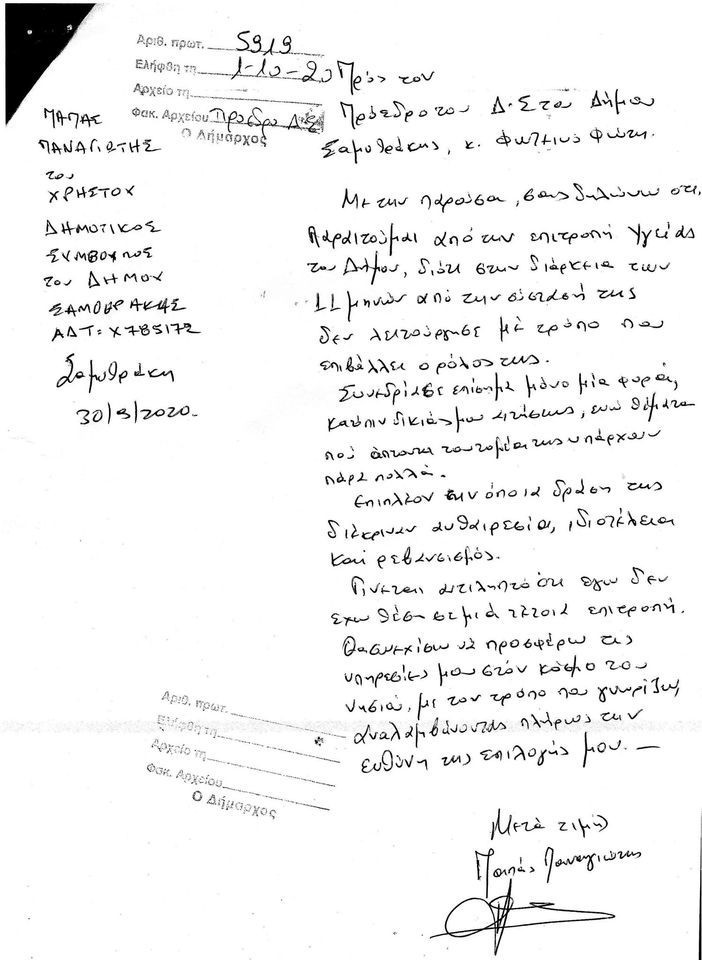 Αριθ. πρωτ. 5919
Ελήφθη τη 1-10-20
Αρχείο τη
Φακ. Αρχείου Πρόεδρο Δ.Σ
Ο Δήμαρχος
ΠΑΠΑΣ
ΠΑΝΑΓΙΩΤΗΣ
του
ΧΡΗΣΤΟΥ
ΔΗΜΟΤΙΚΟΣ
ΣΥΜΒΟΥΛΟΣ
του ΔΗΜΟΥ
ΣΑΜΟΘΡΑΚΗΣ
ΑΔΤ: Χ785172
Σαμοθράκη
30/9/2020.
Προς τον
Πρόεδρο του Δ.Σ του Δήμου
Σαμοθράκης, κ. Φώτη.
Με την παρούσα, σας δηλώνω οτι,
παραιτούμαι από την επιτροπή Υγείας
του Δήμου, διότι στην διάρκεια των
11 μηνών από την σύστασή της
δεν λειτούργησε με τρόπο που
επιβάλλει ο ρόλος της.
Συνεδρίασε επίσημα μόνο μία φορά,
κατόπιν δικιάς μου αιτήσεως, ενώ θέματα
πού άπτονται του τομέα της υπάρχουν
πάρα πολλά.
Επιπλέον στην όποια δράση της
διέκρινα αυθαιρεσία, ιδιοτέλεια
και ρεβανσισμός.
Γίνεται αντιληπτό ότι εγω δεν
εχω θέση σε μιά τέτοια επιτροπή.
Θα συνεχίσω να προσφέρω τις
υπηρεσίες μου στόν κόσμο του
νησιού, με τον τρόπο που γνωρίζω,
αναλαμβάνοντας πλήρως την
ευθύνη της επιλογής μου. —
Αριθ. πρωτ.
Ελήφθη τη
Αρχείο τη
Φακ. Αρχείου
Ο Δήμαρχος
Μετά τιμής
Παπάς Παναγιώτης